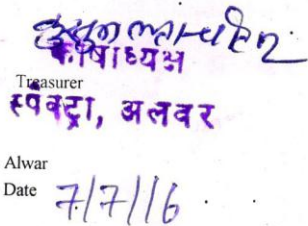 कोषाध्यक्ष
Treasurer
स्पैक्ट्रा, अलवर
Alwar
Date 7/7/16